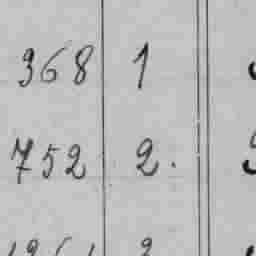 368 1
752 2.